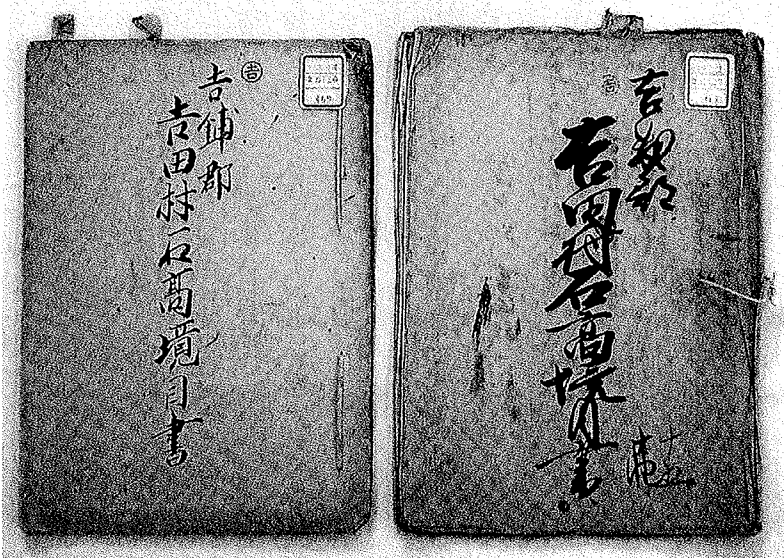 吉
吉鋪郡
吉田村石高境目書
吉敷郡
吉田村石高境目書